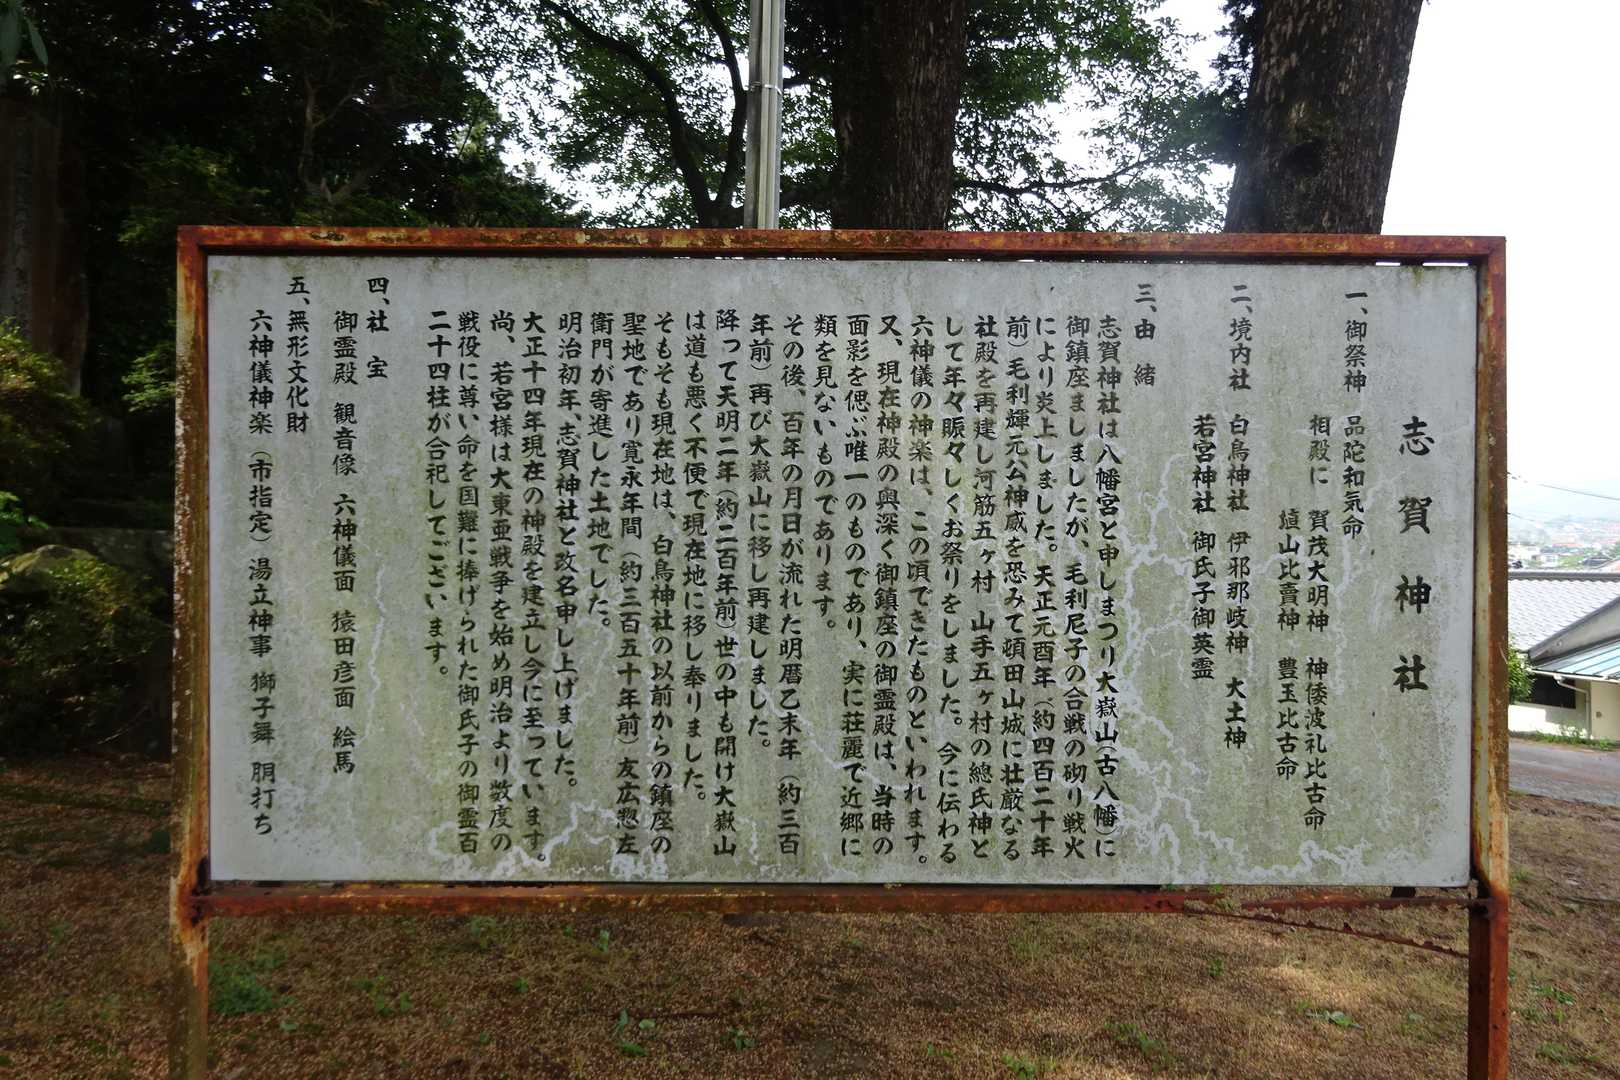 志賀神社
一、御祭神 品陀和気命
相殿に 賀茂大明神 神倭波礼比古命
埴山比賣神 豊玉比古命
二、境内社 白鳥神社 伊邪那岐神 大土神
若宮神社 御氏子御英霊
三、由緒
志賀神社は八幡宮と申しまつり大嶽山（古八幡）に
御鎮座ましましたが、毛利尼子の合戦の砌り戦火
により炎上しました。天正元酉年（約四百二十年
前）毛利輝元公神威を恐みて頓田山城に壮厳なる
社殿を再建し河筋五ヶ村 山手五ヶ村の總氏神と
して年々賑々しくお祭りをしました。今に伝わる
六神儀の神楽は、この頃できたものといわれます。
又、現在神殿の奥深く御鎮座の御霊殿は、当時の
面影を偲ぶ唯一のものであり、実に荘麗で近郷に
類を見ないものであります。
その後、百年の月日が流れた明暦乙未年（約三百
年前）再び大嶽山に移し再建しました。
降って天明二年（約二百年前）世の中も開け大嶽山
は道も悪く不便で現在地に移し奉りました。
そもそも現在地は、白鳥神社の以前からの鎮座の
聖地であり寛永年間（約三百五十年前）友広惣左
衛門が寄進した土地でした。
明治初年、志賀神社と改名申し上げました。
大正十四年現在の神殿を建立し今に至っています。
尚、若宮様は大東亜戦争を始め明治より数度の
戦役に尊い命を国難に捧げられた御氏子の御霊百
二十四柱が合祀してございます。
四、社宝
御霊殿 観音像 六神儀面 猿田彦面 絵馬
五、無形文化財
六神儀神楽（市指定）湯立神事 獅子舞 胴打ち